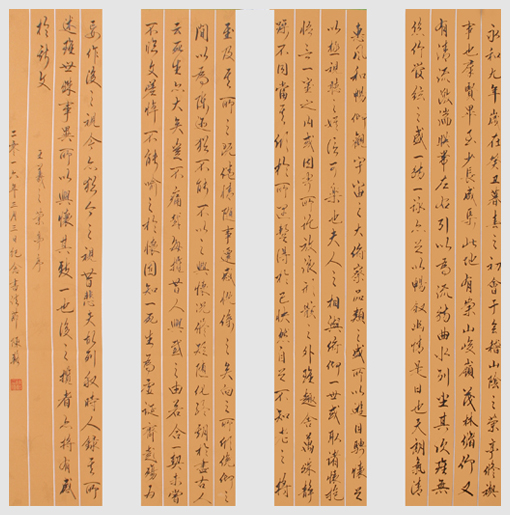 永和九年歲在癸丑暮春之初會于會稽山陰之蘭亭修禊
事也群賢畢至少長咸集此地有崇山峻嶺茂林修竹又
有清流激湍映帶左右引以為流觴曲水列坐其次雖無
絲竹管絃之盛一觴一詠亦足以暢敘幽情是日也天朗氣清
惠風和暢仰觀宇宙之大俯察品類之盛所以遊目騁懷足
以極視聽之娛信可樂也夫人之相與俯仰一世或取諸懷抱
悟言一室之內或因寄所託放浪形骸之外雖趣舍萬殊靜
躁不同當其欣於所遇暫得於己快然自足不知老之將
至及其所之既倦情隨事遷感慨係之矣向之所欣俛仰之
間以為陳迹猶不能不以之興懷況脩短隨化終期於盡古人
云死生亦大矣豈不痛哉每攬昔人興感之由若合一契未嘗
不臨文嗟悼不能喻之於懷固知一死生為虛誕齊彭殤為
妄作後之視今亦猶今之視昔悲夫故列敘時人錄其所
述雖世殊事異所以興懷其致一也後之攬者亦將有感
於斯文
王羲之蘭亭序
二零一六年三月三日紀念書法節